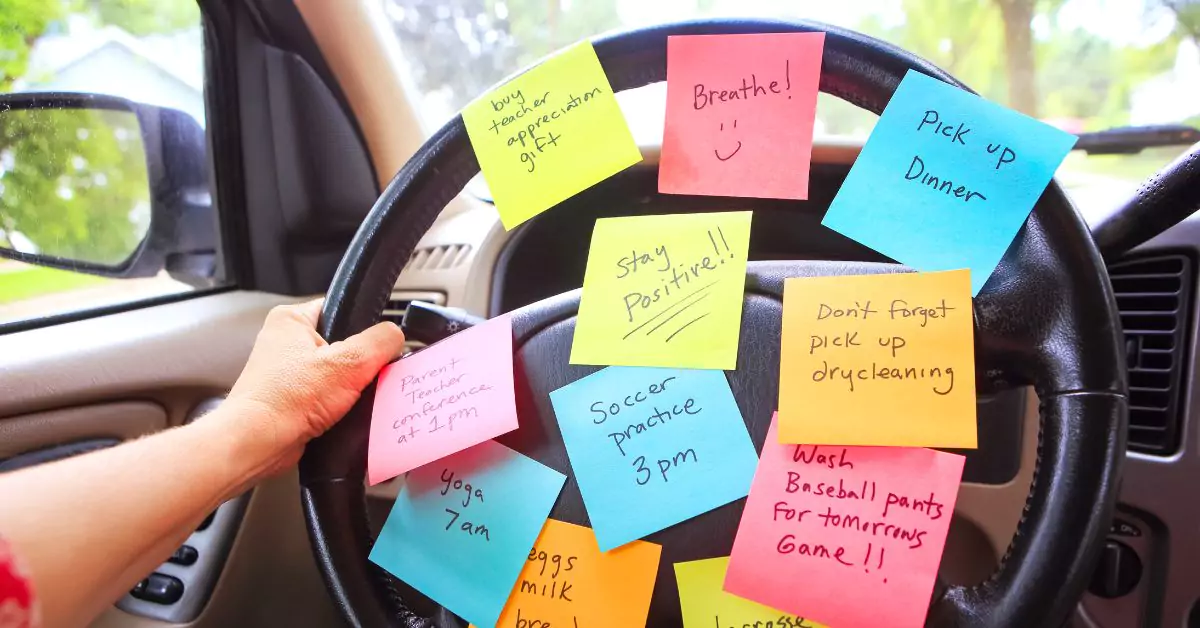 buy
teacher
appreciation
gift
Breathe!
Pick up
Dinner
Stay
Positive!!
Don't forget
pick up
drycleaning
Parent
Teacher
conference
at 1pm
Soccer
practice
3pm
Wash
Baseball pants
For tomorrows
Game!!
Yoga
7am
eggs
milk
bread
lacrosse